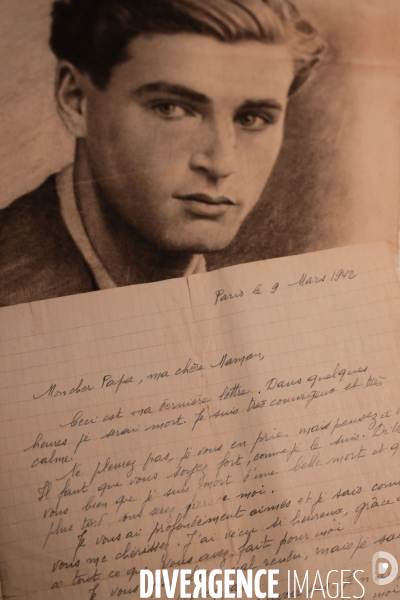 Paris le 9 Mars 1942
Mon cher Papa, ma chère Maman,
Ceci est ma dernière lettre. Dans quelques
heures je serai mort. Je suis très courageux et très
calme.
Ne pleurez pas, je vous en prie, mais pensez à
Il faut que vous soyez fort, comme je le suis.
vous bien que je suis mort d'une belle mort et
plus tard vous serez de moi.
Je vous ai profondément aimés et je sais
vous me chérissez. J'ai vécu si heureux, grâce
à tout ce que vous avez fait pour moi
Je vous rendu, mais je
DIVERGENCE IMAGES